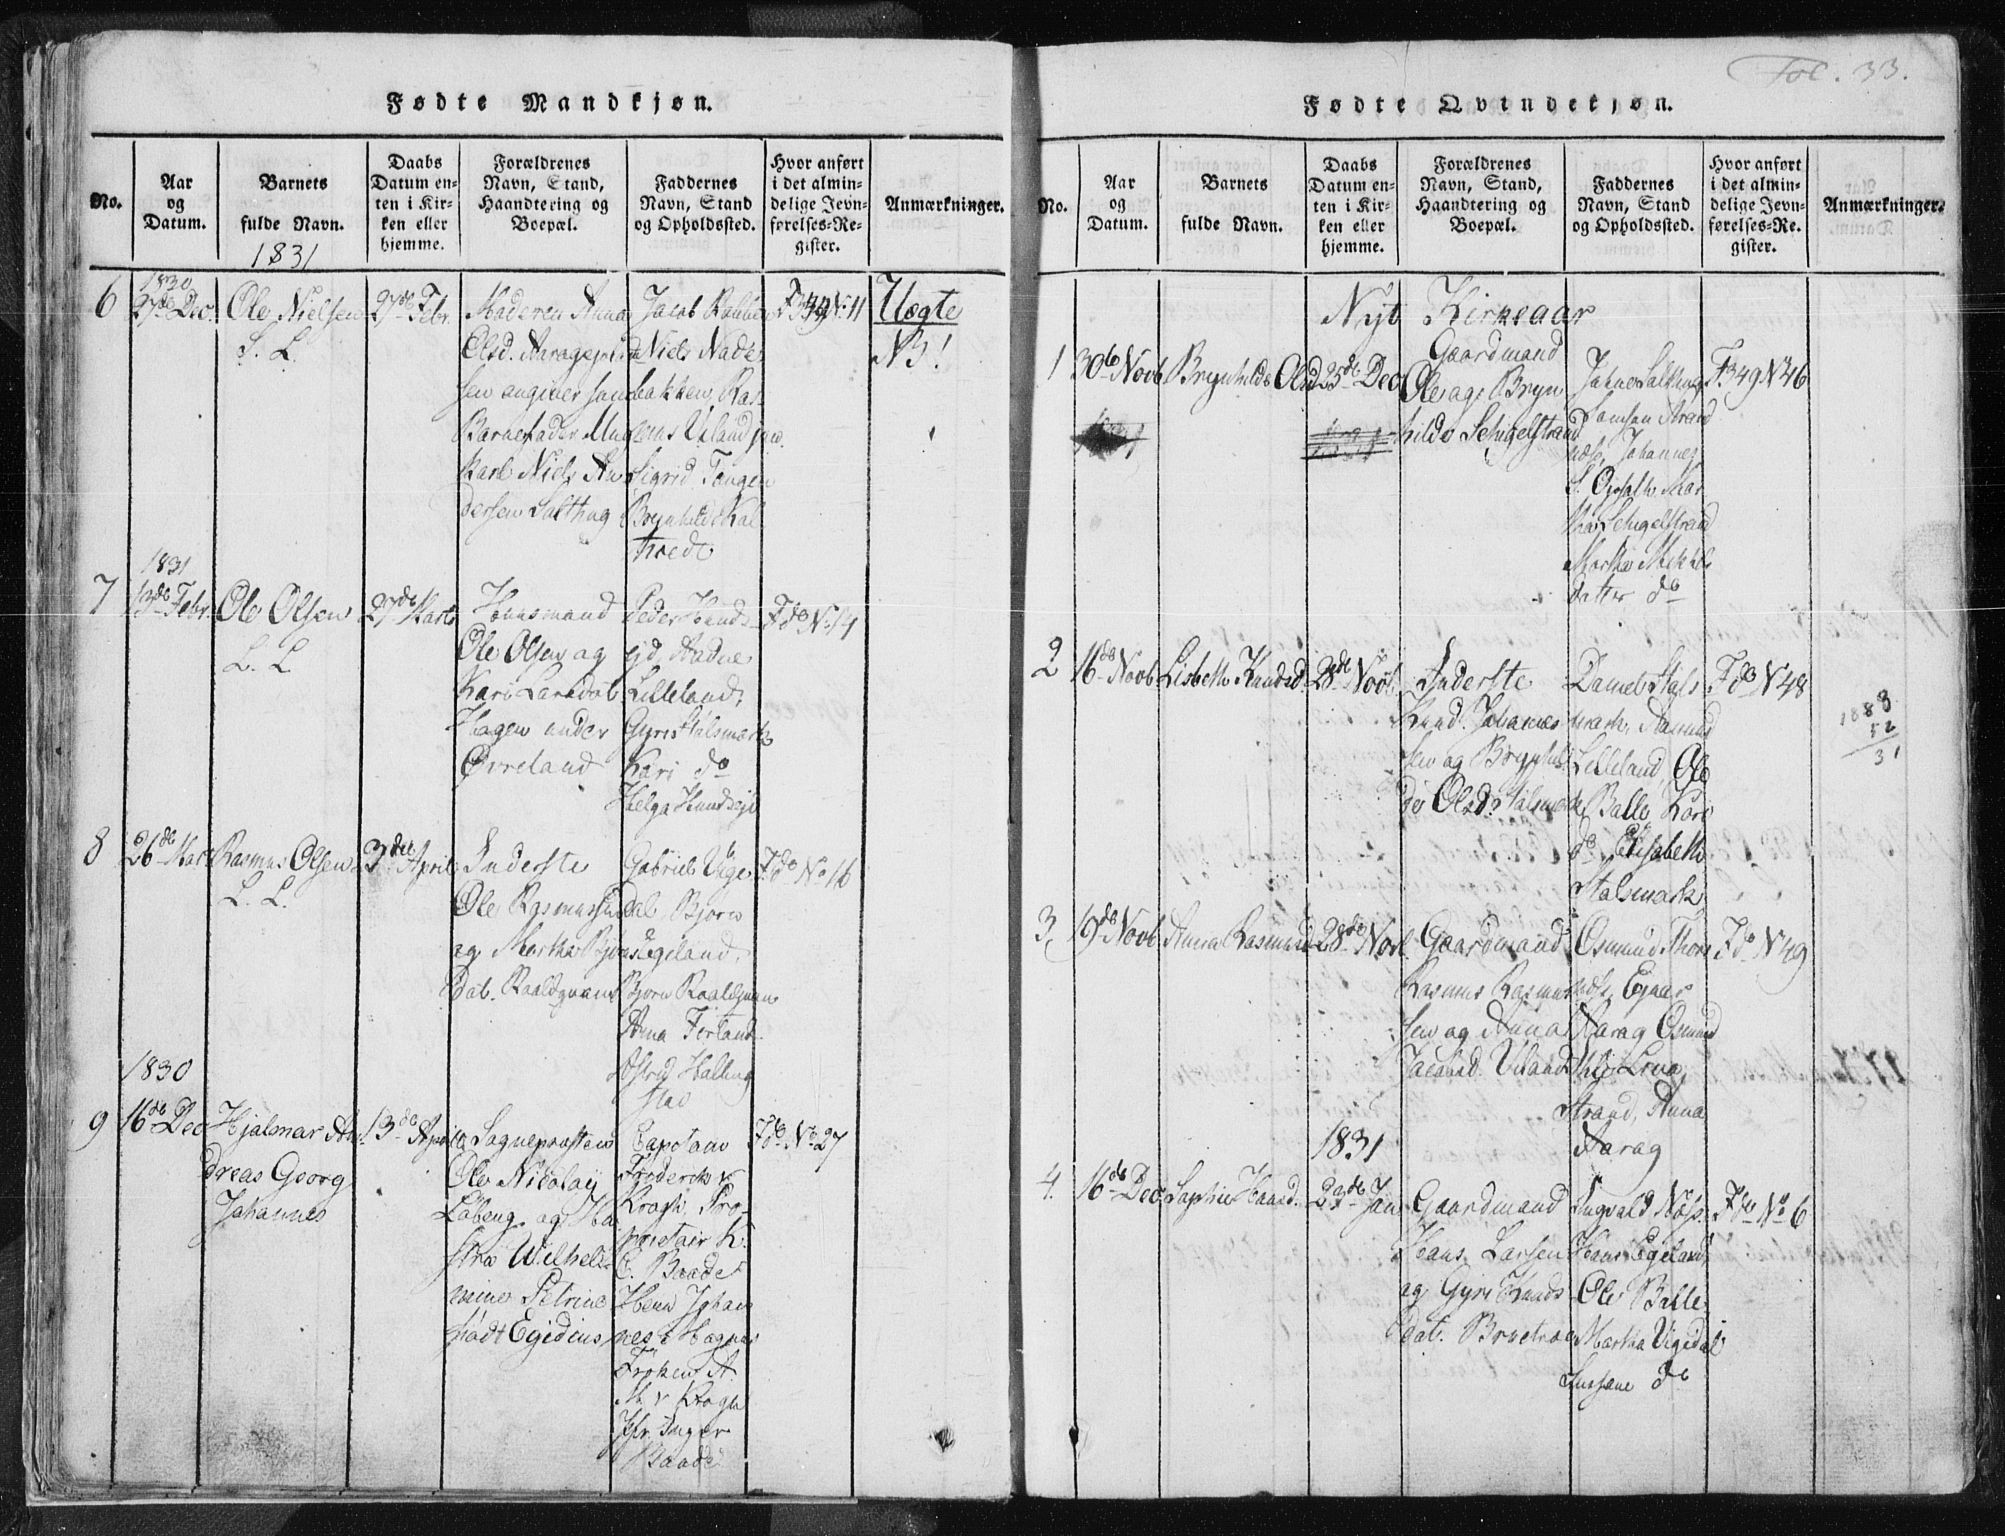 Fødte Mandkjøn.
No.
Aar
og
Datum.
Barnets
fulde Navn.
Daabs
Datum en-
ten i Kir-
ken eller
hjemme.
Forældrenes
Navn, Stand,
Haandtering og
Boepæl.
Faddernes
Navn, Stand
og Opholdssted.
Hvor anført
i det almin-
delige Jevn-
førelses-Re-
gister.
Anmærkninger.
1831
6
1830
27de Dec.
Ole Nielsen
S. L.
27de Febr.
Moderen Anna
Olsd.
Barnefader
Niels An
dersen Salthug
Jacob
Niels Nade
bakken, Ras
Sigrid Tangen
Brynhild Kal
tvedt
No 11
Uægte
NB!
7
1831
13de Febr.
Ole Olsen
L. L
27de Marts
Huusmand
Ole Olsen og
Kari Larsdat
Hagen under
Øvreland
Peder Hunds
ejd, Aadne
Lilleland,
Gyri Stalsmark
Kari do
Helga Hundseje
F do No 14
8
26de Mar
Rasmus Olsen
L. L.
3die April
Inderste
Ole Rasmussen
og Martha Bjørns
Dat. Raaldqvam
Gabriel Vige
Dal, Bjørn
Egeland,
Bjørn Raaldqvam
Anna Førland
Astrid Helling
stad
F. do No 16
9
1830
16de Dec
Hjalmar An
dreas Georg
Johannes
13de April
Sognepræsten
Ole Nicolay
Løberg og Ha
stru Wilhel
mine Petrine
født Egidius
Capitain
Frederik v
Krogh, Pro
prietair K.
E. Baade
Herr Johan
nes Magnus
Frøken A.
M. v Krogh
Jfr. Inger
Baade
F do No 27
Fol. 33.
Fødte Qvindekjøn.
No.
Aar
og
Datum.
Barnets
fulde Navn.
Daabs
Datum en-
ten i Kir-
ken eller
hjemme.
Forældrenes
Navn, Stand,
Haandtering og
Boepæl.
Faddernes
Navn, Stand
og Opholdssted.
Hvor anført
i det almin-
delige Jevn-
førelses-Re-
gister.
Anmærkninger.
Nyt Kirkeaar
1
30te Novb
Brynhilde Olsd
25de Dec
Gaardmand
Ole og Bryn
hilde Schigelstrand
Johannes
Samson Strand
næs, Johannes
S. Opsalh Mar
tha Schigelstrand
Martha Mikkels
datter do
F. 349 N 46
2
16de Novb
Lisbeth Knudsd
28de Novb
Inderste
Knud Johannes
sen og Brynhil
de Olsd. Stalsmark
Daniel Stals
mark, Aamund
Lilleland, Ole
Balle, Kari
do, Elisabeth
Stalsmark
F do N 48
1883
52
31
3
19de Novb
Anna Rasmusd
28de Novb
Gaardmand
Rasmus Rasmus
sen og Anna
Jacobsd. Veland
Osmund Thors
næs, Ejner
Aarag Osmund
Lena
Strand, Anna
Aarag
F do N 49
4
16de Dec
Sophie Hansd.
1831
23de Jan
Gaardmand
Hans Larsen
og Gyri Knuds
Dat.
Ingvald Næss
Hans Egeland
Ole Balle
Martha Vigedal
Susane do
F do No 6